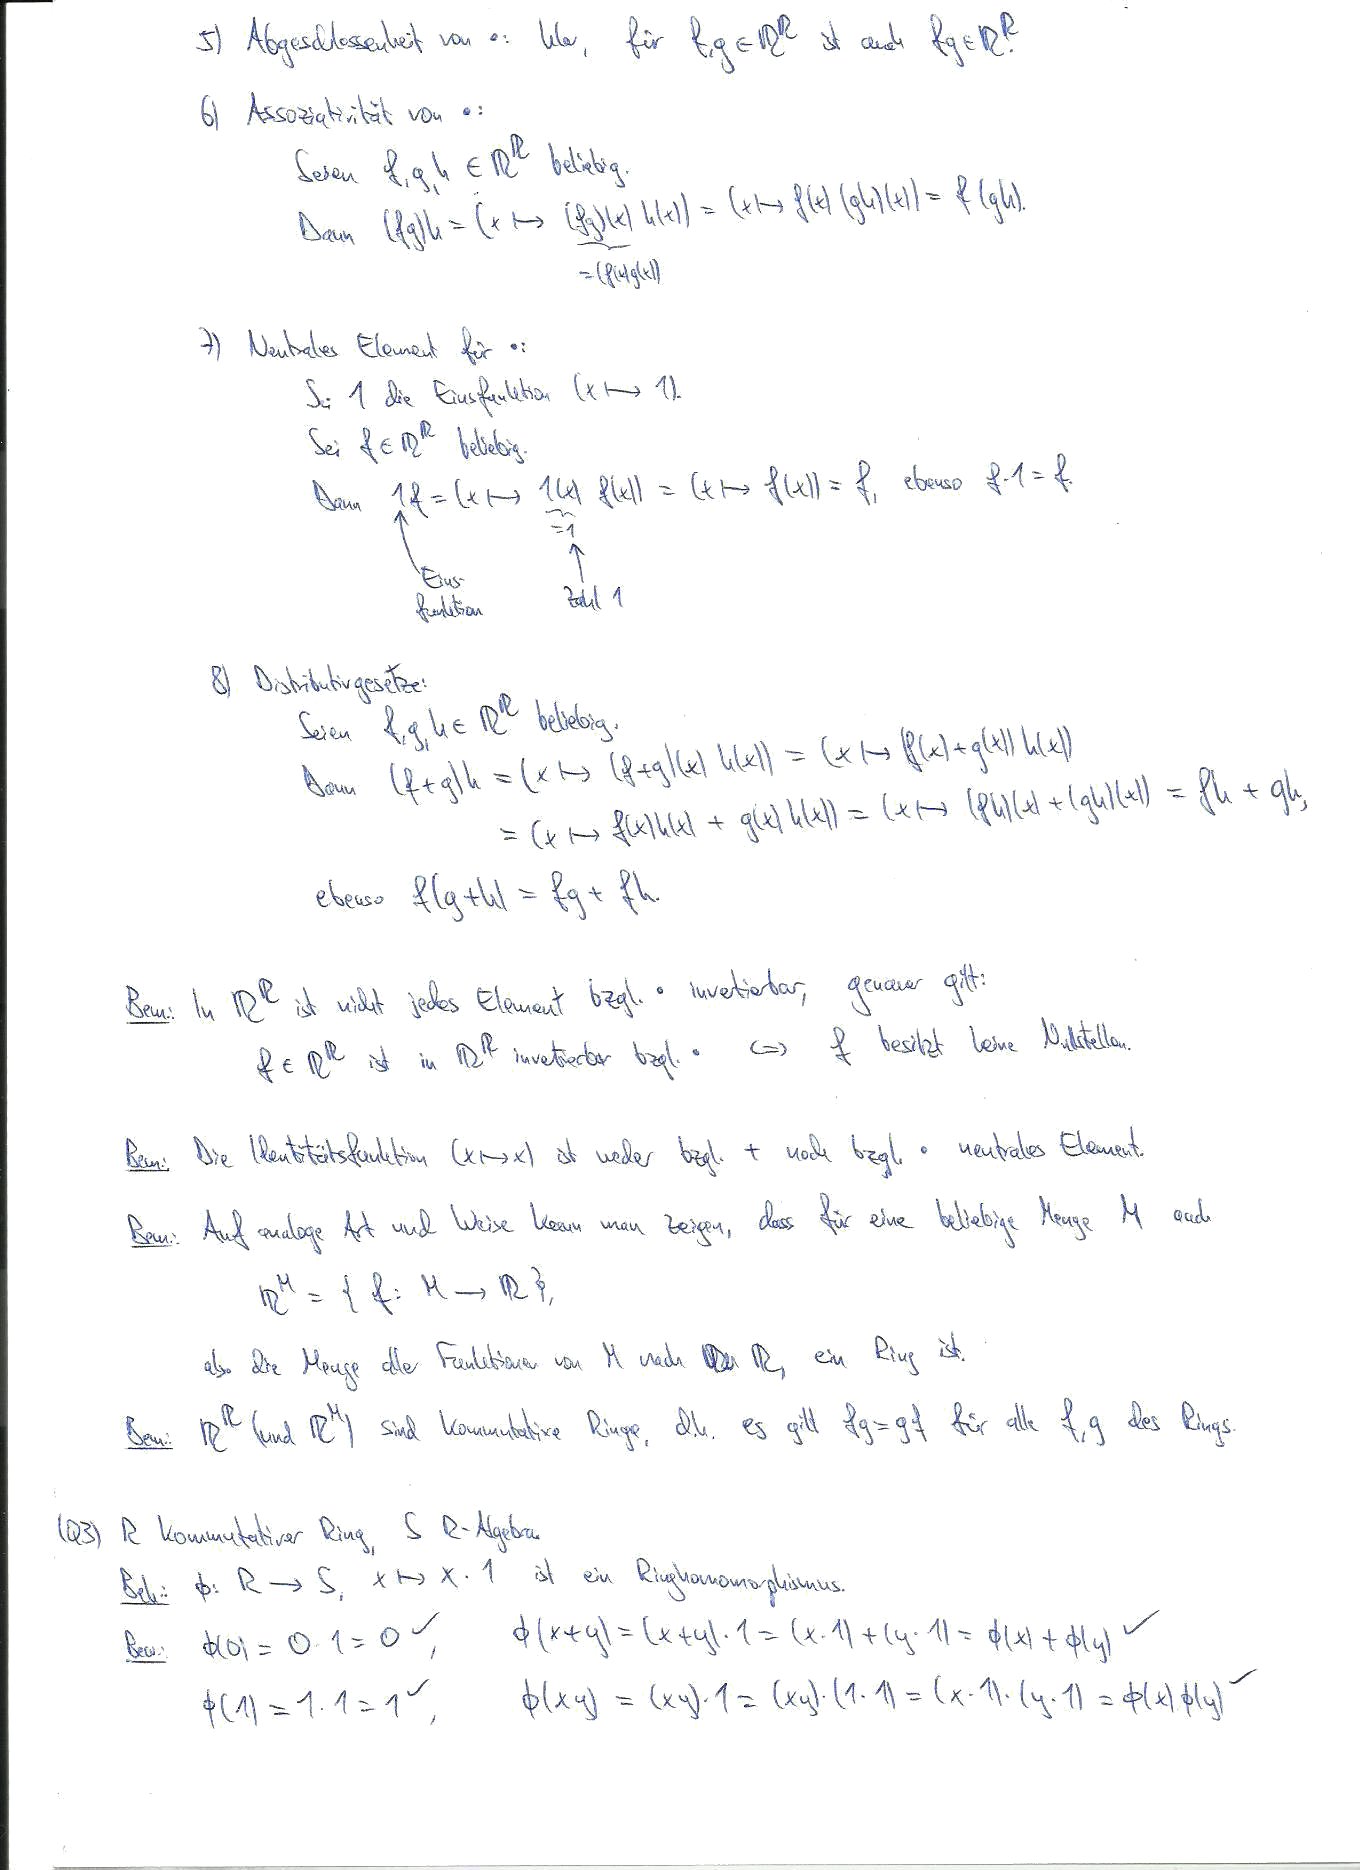 5) Abgeschlossenheit von •: klar, für f,g ∈ ℝ^ℝ ist auch fg ∈ ℝ^ℝ.
6) Assoziativität von •:
Seien f,g,h ∈ ℝ^ℝ beliebig.
Dann (fg)h = (x ↦ (fg)(x) h(x)) = (x ↦ f(x) (gh)(x)) = f(gh).
=(f(x)g(x))
7) Neutrales Element für •:
Sei 1 die Einsfunktion (x ↦ 1).
Sei f ∈ ℝ^ℝ beliebig.
Dann 1f = (x ↦ 1(x) f(x)) = (x ↦ f(x)) = f, ebenso f·1 = f.
=1
Eins-
funktion
Zahl 1
8) Distributivgesetze:
Seien f,g,h ∈ ℝ^ℝ beliebig.
Dann (f+g)h = (x ↦ (f+g)(x) h(x)) = (x ↦ (f(x)+g(x)) h(x))
= (x ↦ f(x)h(x) + g(x)h(x)) = (x ↦ (fh)(x) + (gh)(x)) = fh + gh,
ebenso f(g+h) = fg + fh.
Bem.: In ℝ^ℝ ist nicht jedes Element bzgl. • invertierbar, genauer gilt:
f ∈ ℝ^ℝ ist in ℝ^ℝ invertierbar bzgl. • ⇔ f besitzt keine Nullstellen.
Bem.: Die Identitätsfunktion (x↦x) ist weder bzgl. + noch bzgl. • neutrales Element.
Bem.: Auf analoge Art und Weise kann man zeigen, dass für eine beliebige Menge M auch
ℝ^M = { f: M → ℝ },
also die Menge aller Funktionen von M nach ℝ, ein Ring ist.
Bem.: ℝ^ℝ (und ℝ^M) sind kommutative Ringe, d.h. es gilt fg=gf für alle f,g des Rings.
(Q3) R kommutativer Ring, S R-Algebra
Beh.: ϕ: R → S, x ↦ x·1 ist ein Ringhomomorphismus.
Bew.: ϕ(0) = 0·1 = 0 ✓, ϕ(x+y) = (x+y)·1 = (x·1)+(y·1) = ϕ(x)+ϕ(y) ✓
ϕ(1) = 1·1 = 1 ✓, ϕ(xy) = (xy)·1 = (xy)·(1·1) = (x·1)·(y·1) = ϕ(x)ϕ(y) ✓